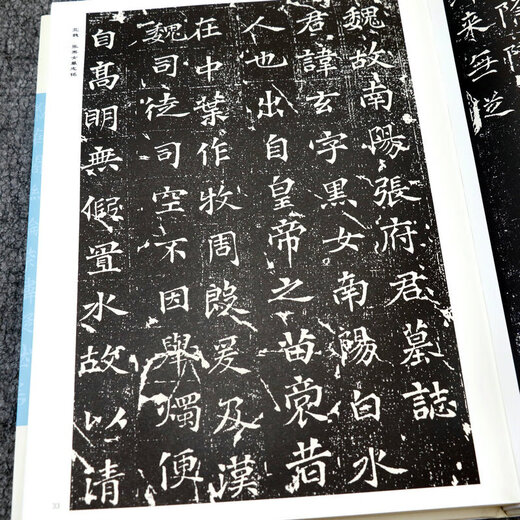 來無
魏故南陽張府君墓誌
君諱玄字黑女南陽白水
人也出自皇帝之苗裔昔
在中葉作牧周殷爰及漢
魏司徒司空不因舉燭便
自高明無假置水故以清
北魏 張黑女墓志銘